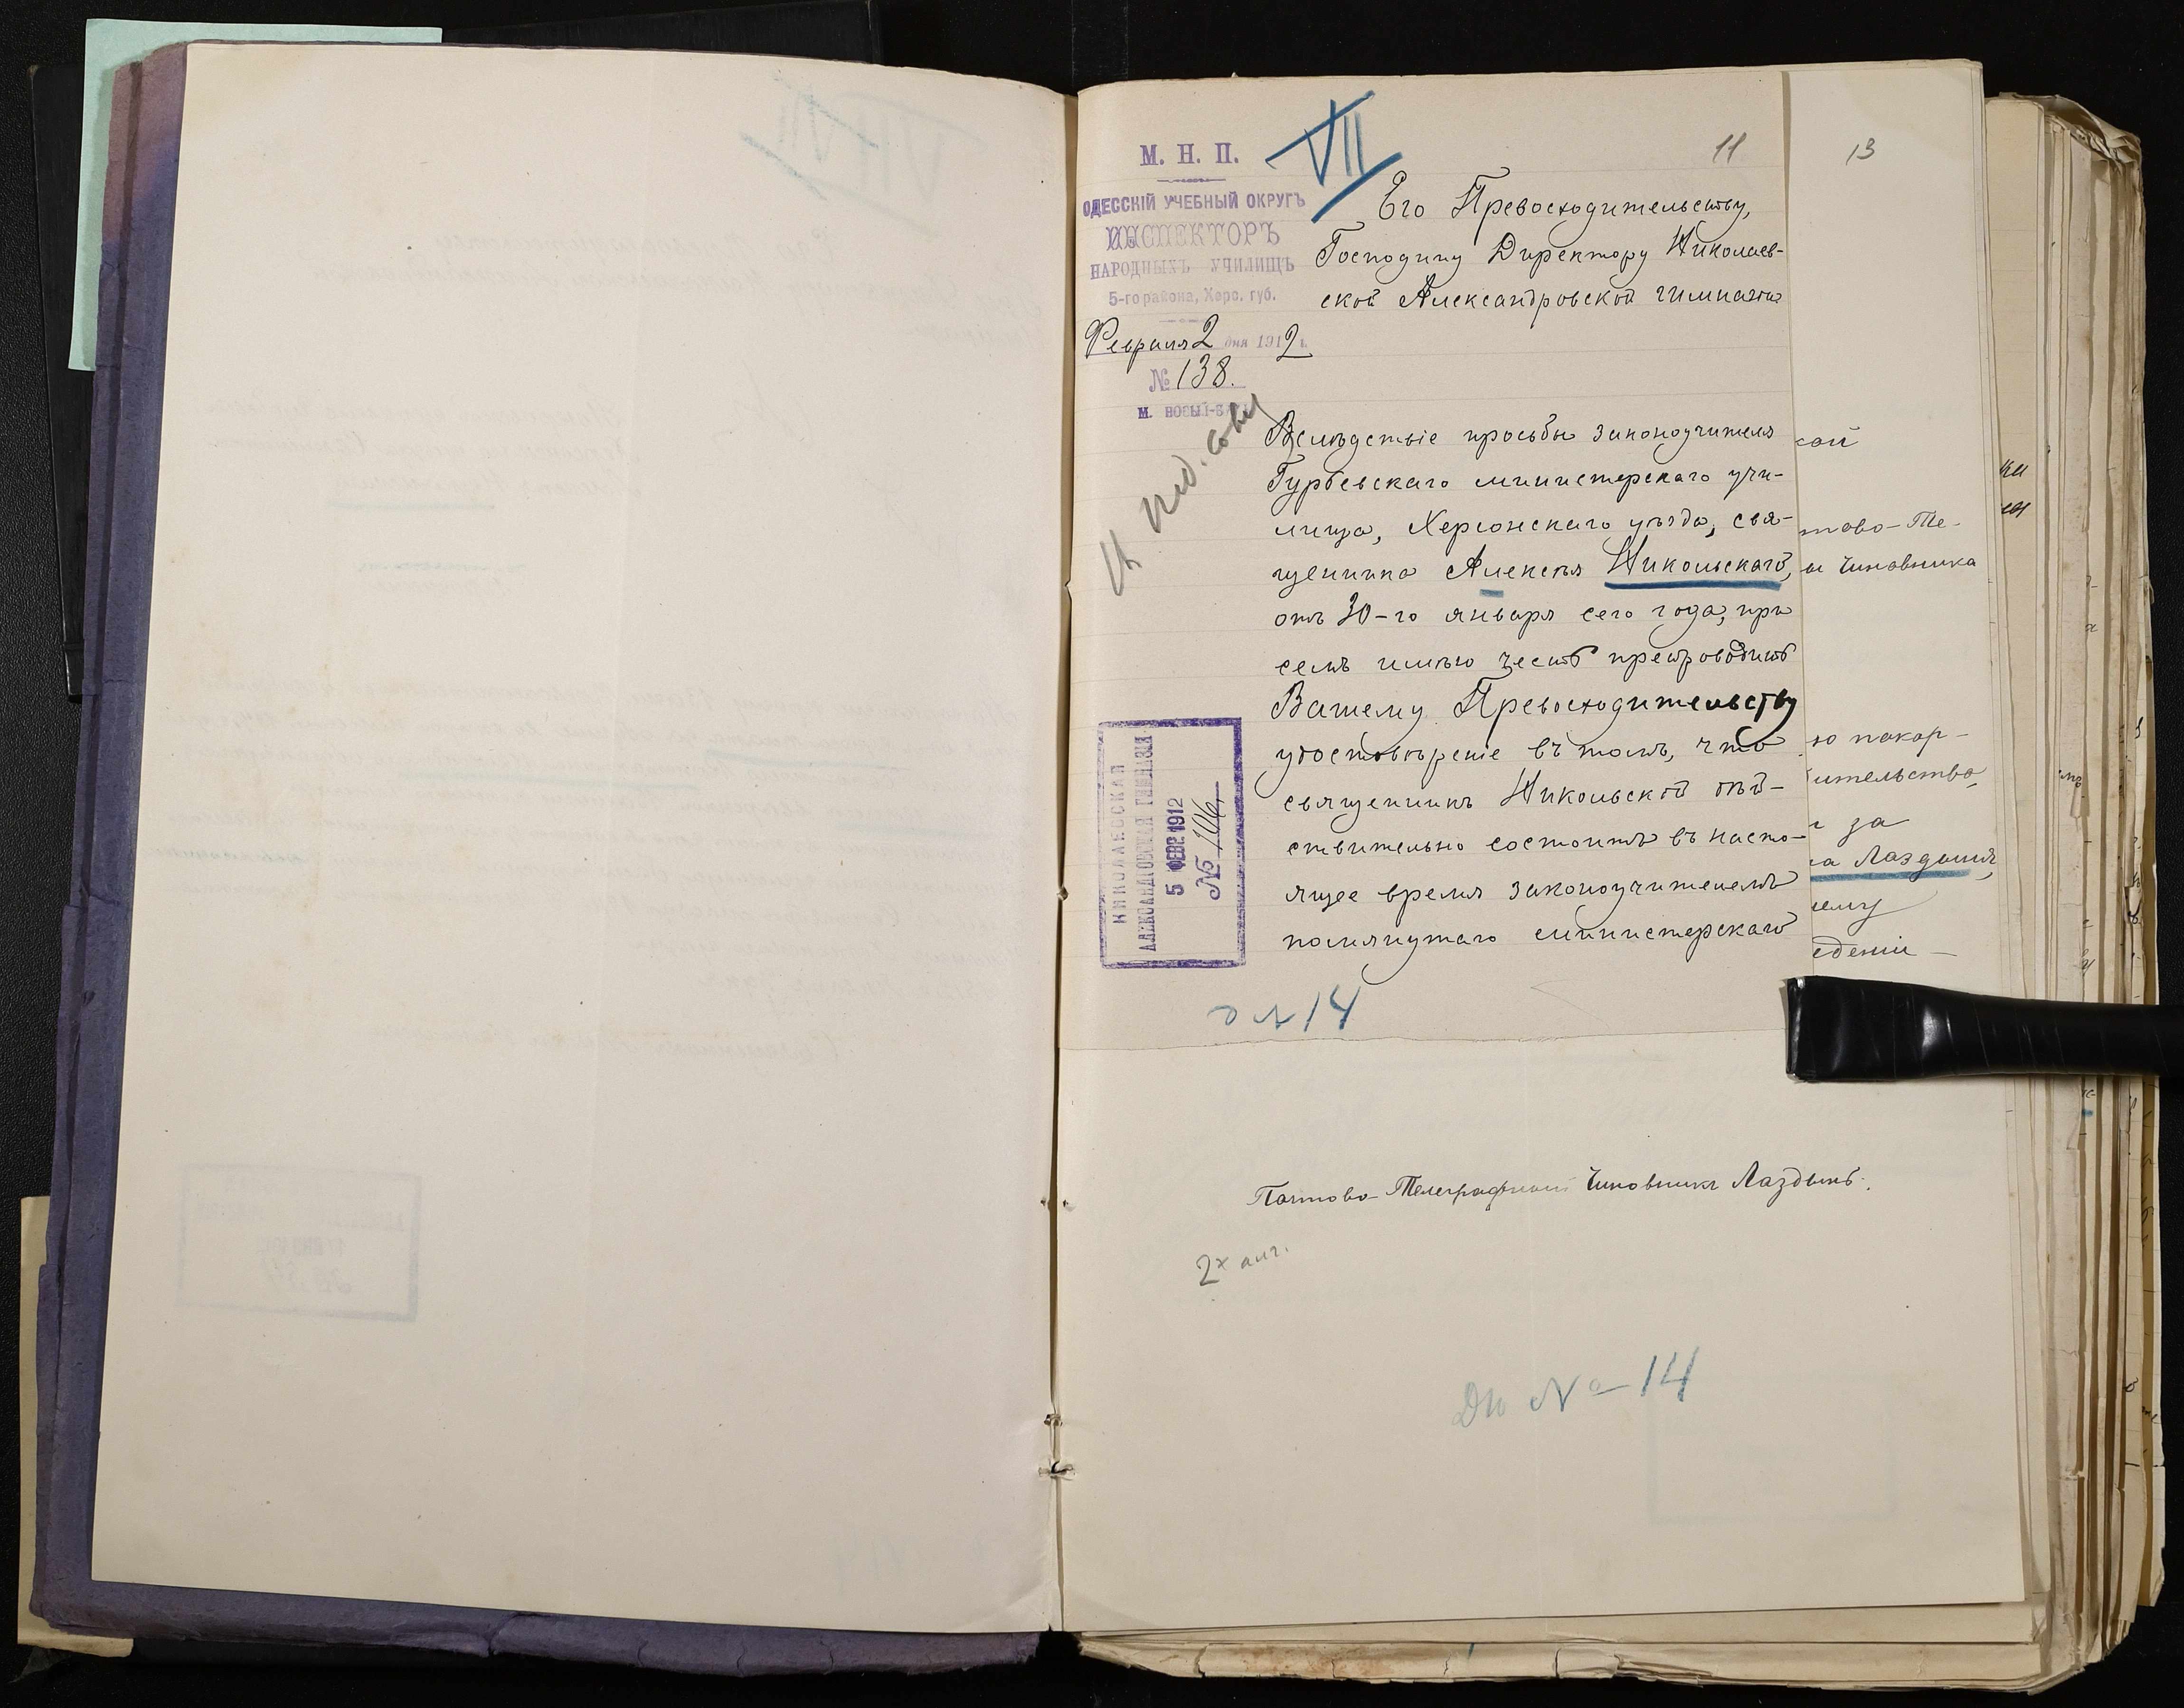 VII
11
М. Н. П.
ОДЕССКІЙ УЧЕБНЫЙ ОКРУГЪ
ИНСПЕКТОРЪ
НАРОДНЫХЪ УЧИЛИЩЪ
5-го района, Херс. губ.
Февраля 2 дня 1912 г.
№ 138.
м. НОВЫЙ-БУГЪ
Его Превосходительству,
Господину Директору Николаев-
ской Александровской гимназіи
Вслѣдствіе просьбы законоучителя
Гурьевскаго министерскаго учи-
лища, Херсонскаго уѣзда, свя-
щенника Алексѣя Никольскаго,
отъ 30-го января сего года, при
семъ имѣю честь препроводить
Вашему Превосходительству
удостовѣреніе въ томъ, что
священникъ Никольскій дѣй-
ствительно состоитъ въ насто-
ящее время законоучителемъ
помянутаго министерскаго
Къ пед. сов.
НИКОЛАЕВСКАЯ
АЛЕКСАНДРОВСКАЯ ГИМНАЗІЯ
5 ФЕВР 1912
№ 106.
14
13
ской
тово-Те-
чиновника
ю покор-
ительство,
за
на Лаздыня,
ему
едении
Почтово-Телеграфный Чиновникъ Лаздынь.
2х анг.
Дѣло № 14